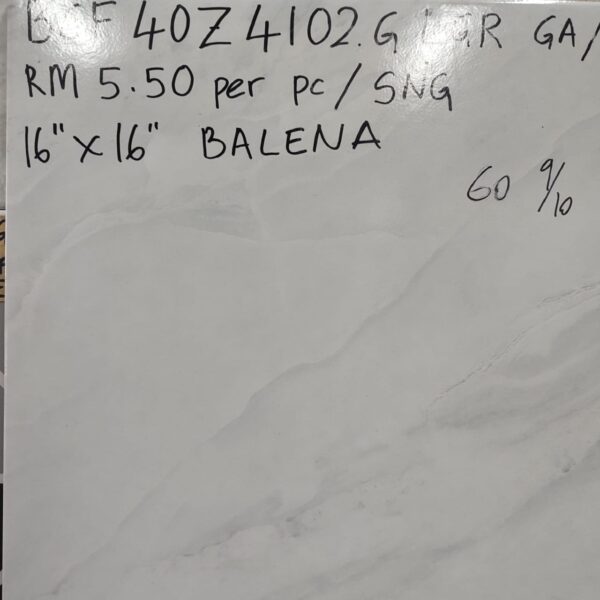 40Z4102.G GA/
RM 5.50 per pc / SNG
16" x 16" BALENA
60 9/10